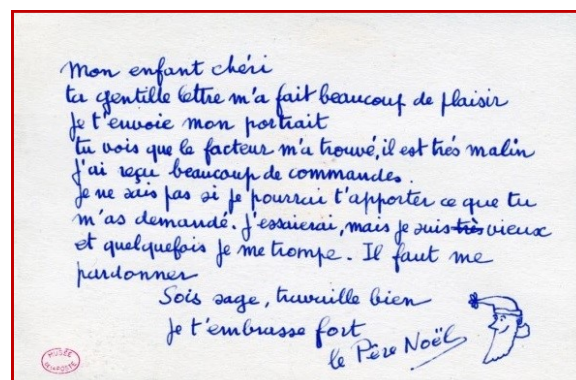 Mon enfant chéri
ta gentille lettre m'a fait beaucoup de plaisir
Je t'envoie mon portrait
tu vois que le facteur m'a trouvé, il est très malin
J'ai reçu beaucoup de commandes.
je ne sais pas si je pourrai t'apporter ce que tu
m'as demandé. J'essaierai, mais je suis très vieux
et quelquefois je me trompe. Il faut me
pardonner
Sois sage, travaille bien
Je t'embrasse fort
le Père Noël
MUSÉE
DE LA POSTE